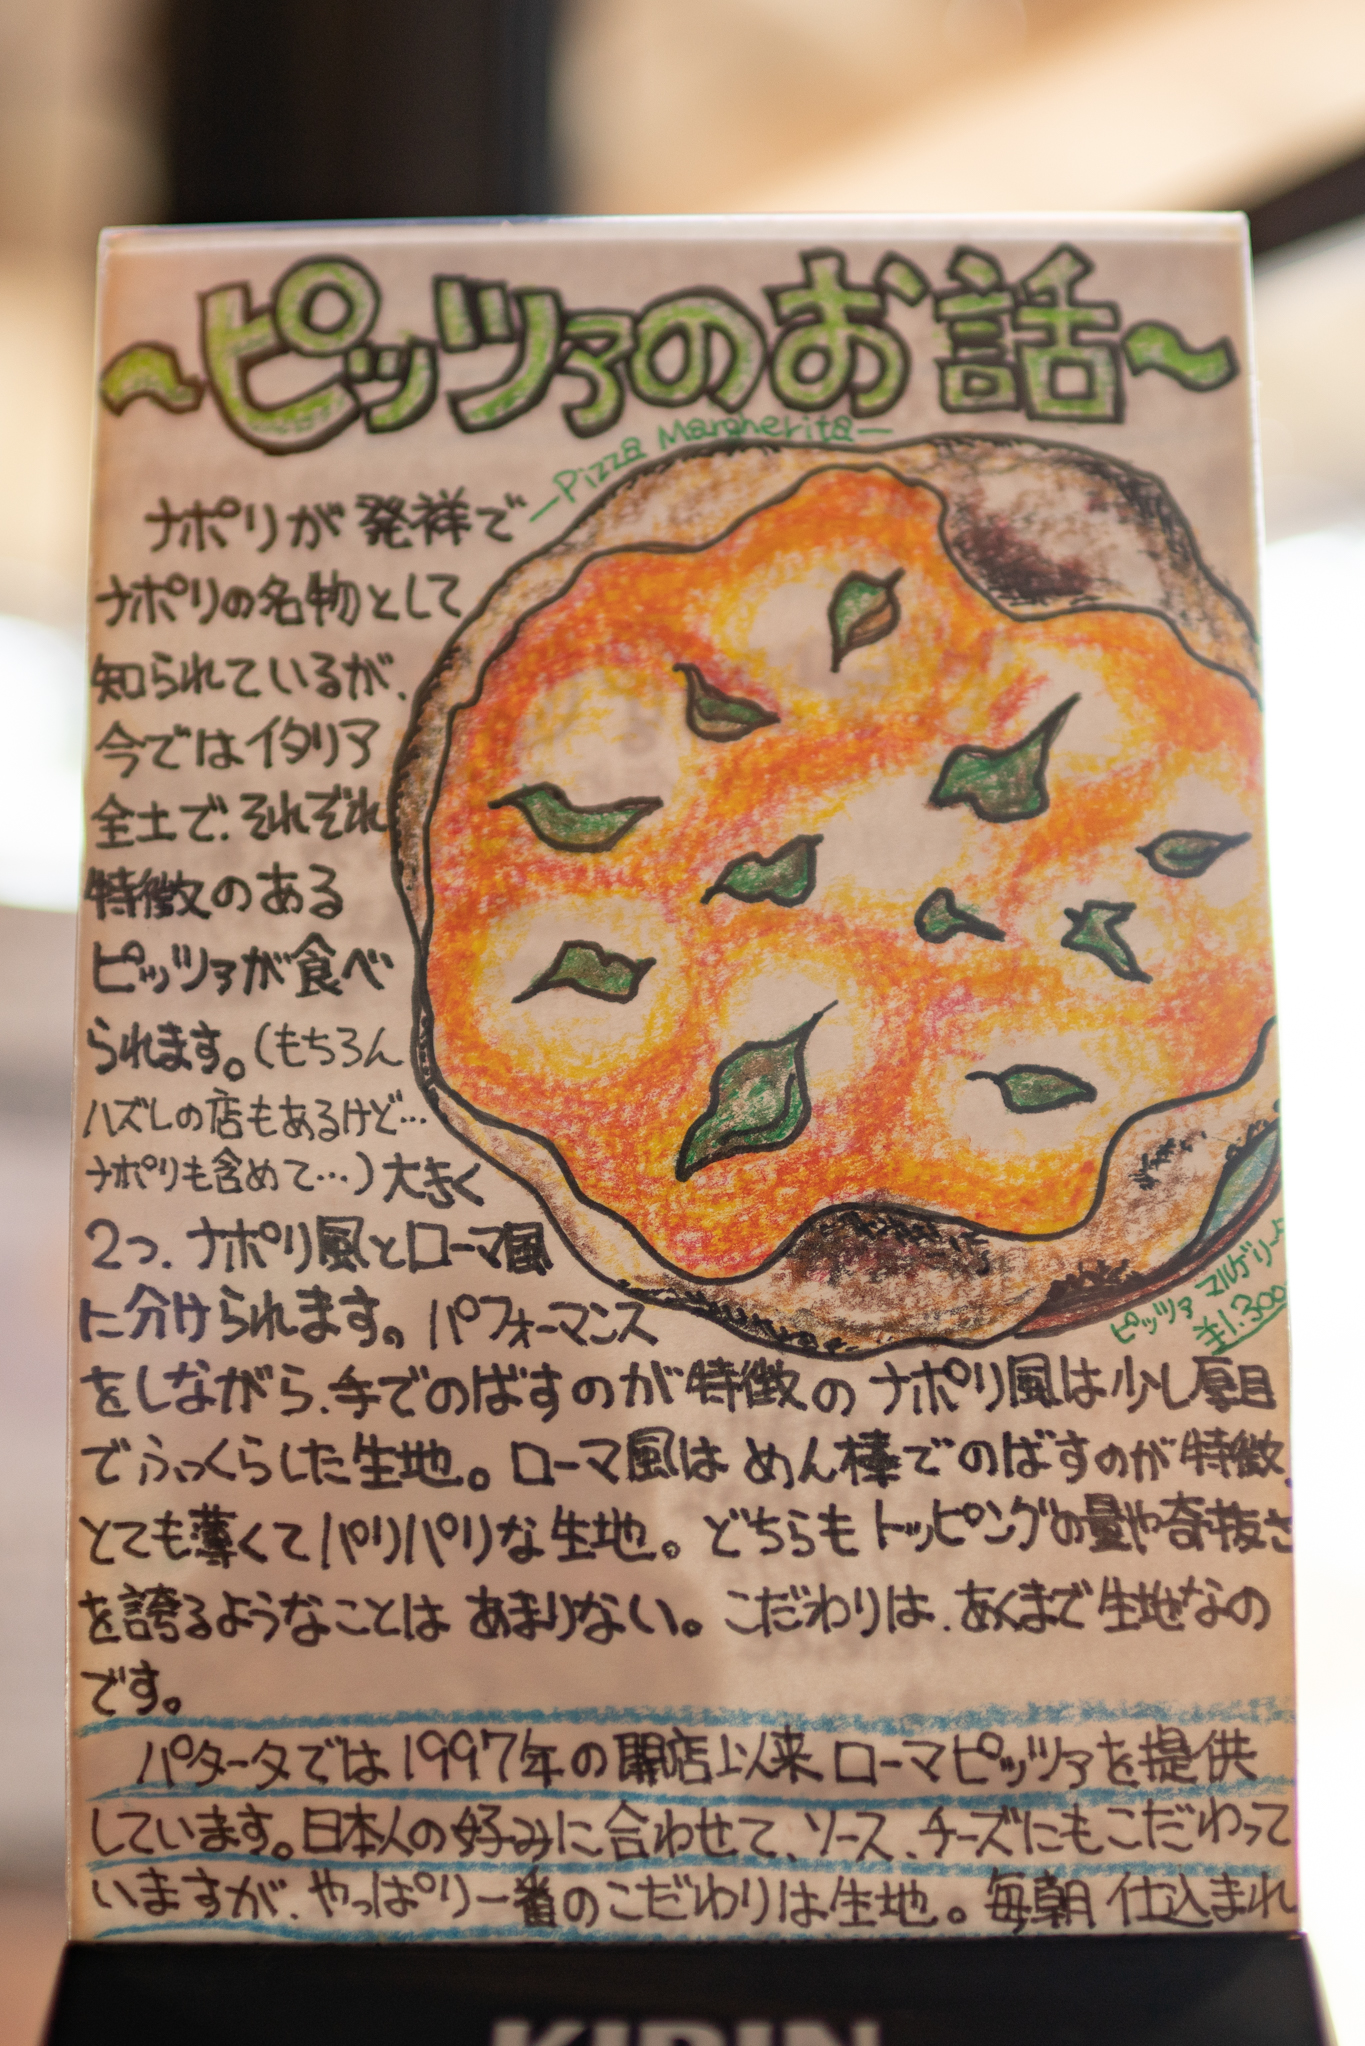 ~ピッツァのお話~
―Pizza Margherita―
ナポリが発祥で
ナポリの名物として
知られているが、
今ではイタリア
全土で、それぞれ
特徴のある
ピッツァが食べ
られます。(もちろん
ハズレの店もあるけど…
ナポリも含めて…)大きく
2つ、ナポリ風とローマ風
に分けられます。パフォーマンス
をしながら、手でのばすのが特徴のナポリ風は少し厚目
でふっくらした生地。ローマ風はめん棒でのばすのが特徴、
とても薄くてパリパリな生地。どちらもトッピングの量や奇抜さ
を誇るようなことはあまりない。こだわりは、あくまで生地なの
です。
ピッツァ マルゲリータ
¥1,300
パタータでは1997年の開店以来ローマピッツァを提供
しています。日本人の好みに合わせて、ソース、チーズにもこだわって
いますが、やっぱり一番のこだわりは生地。毎朝仕込まれ
KIRIN